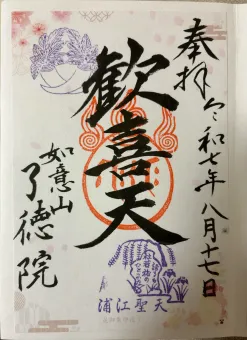 奉拝
令和七年八月十七日
歓喜天
如意山
了徳院
浦江聖天